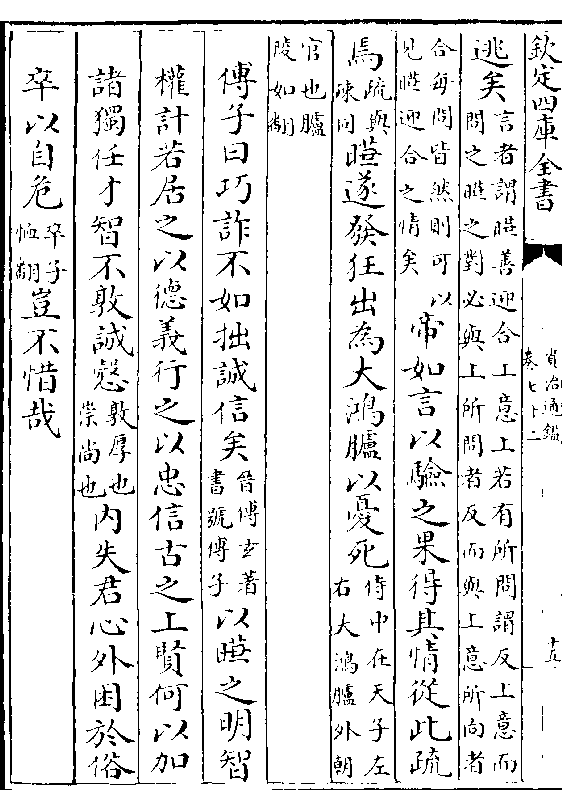 欽定四庫全書
資治通鑑
卷七十二
十五
逃矣言者謂曄善迎合上意上若有所問謂反上意而
問之曄之對必與上所問者反而與上意所向者
合每問皆然則可以
見曄迎合之情矣帝如言以驗之果得其情從此疏
焉疏與
疎同曄遂發狂出為大鴻臚以憂死侍中在天子左
右大鴻臚外朝
官也臚
陵如翻
傅子曰巧詐不如拙誠信矣晉傅玄著
書號傅子以曄之明智
權計若居之以德義行之以忠信古之上賢何以加
諸獨任才智不敦誠慤敦厚也
崇尚也内失君心外困於俗
卒以自危卒子
恤翻豈不惜哉